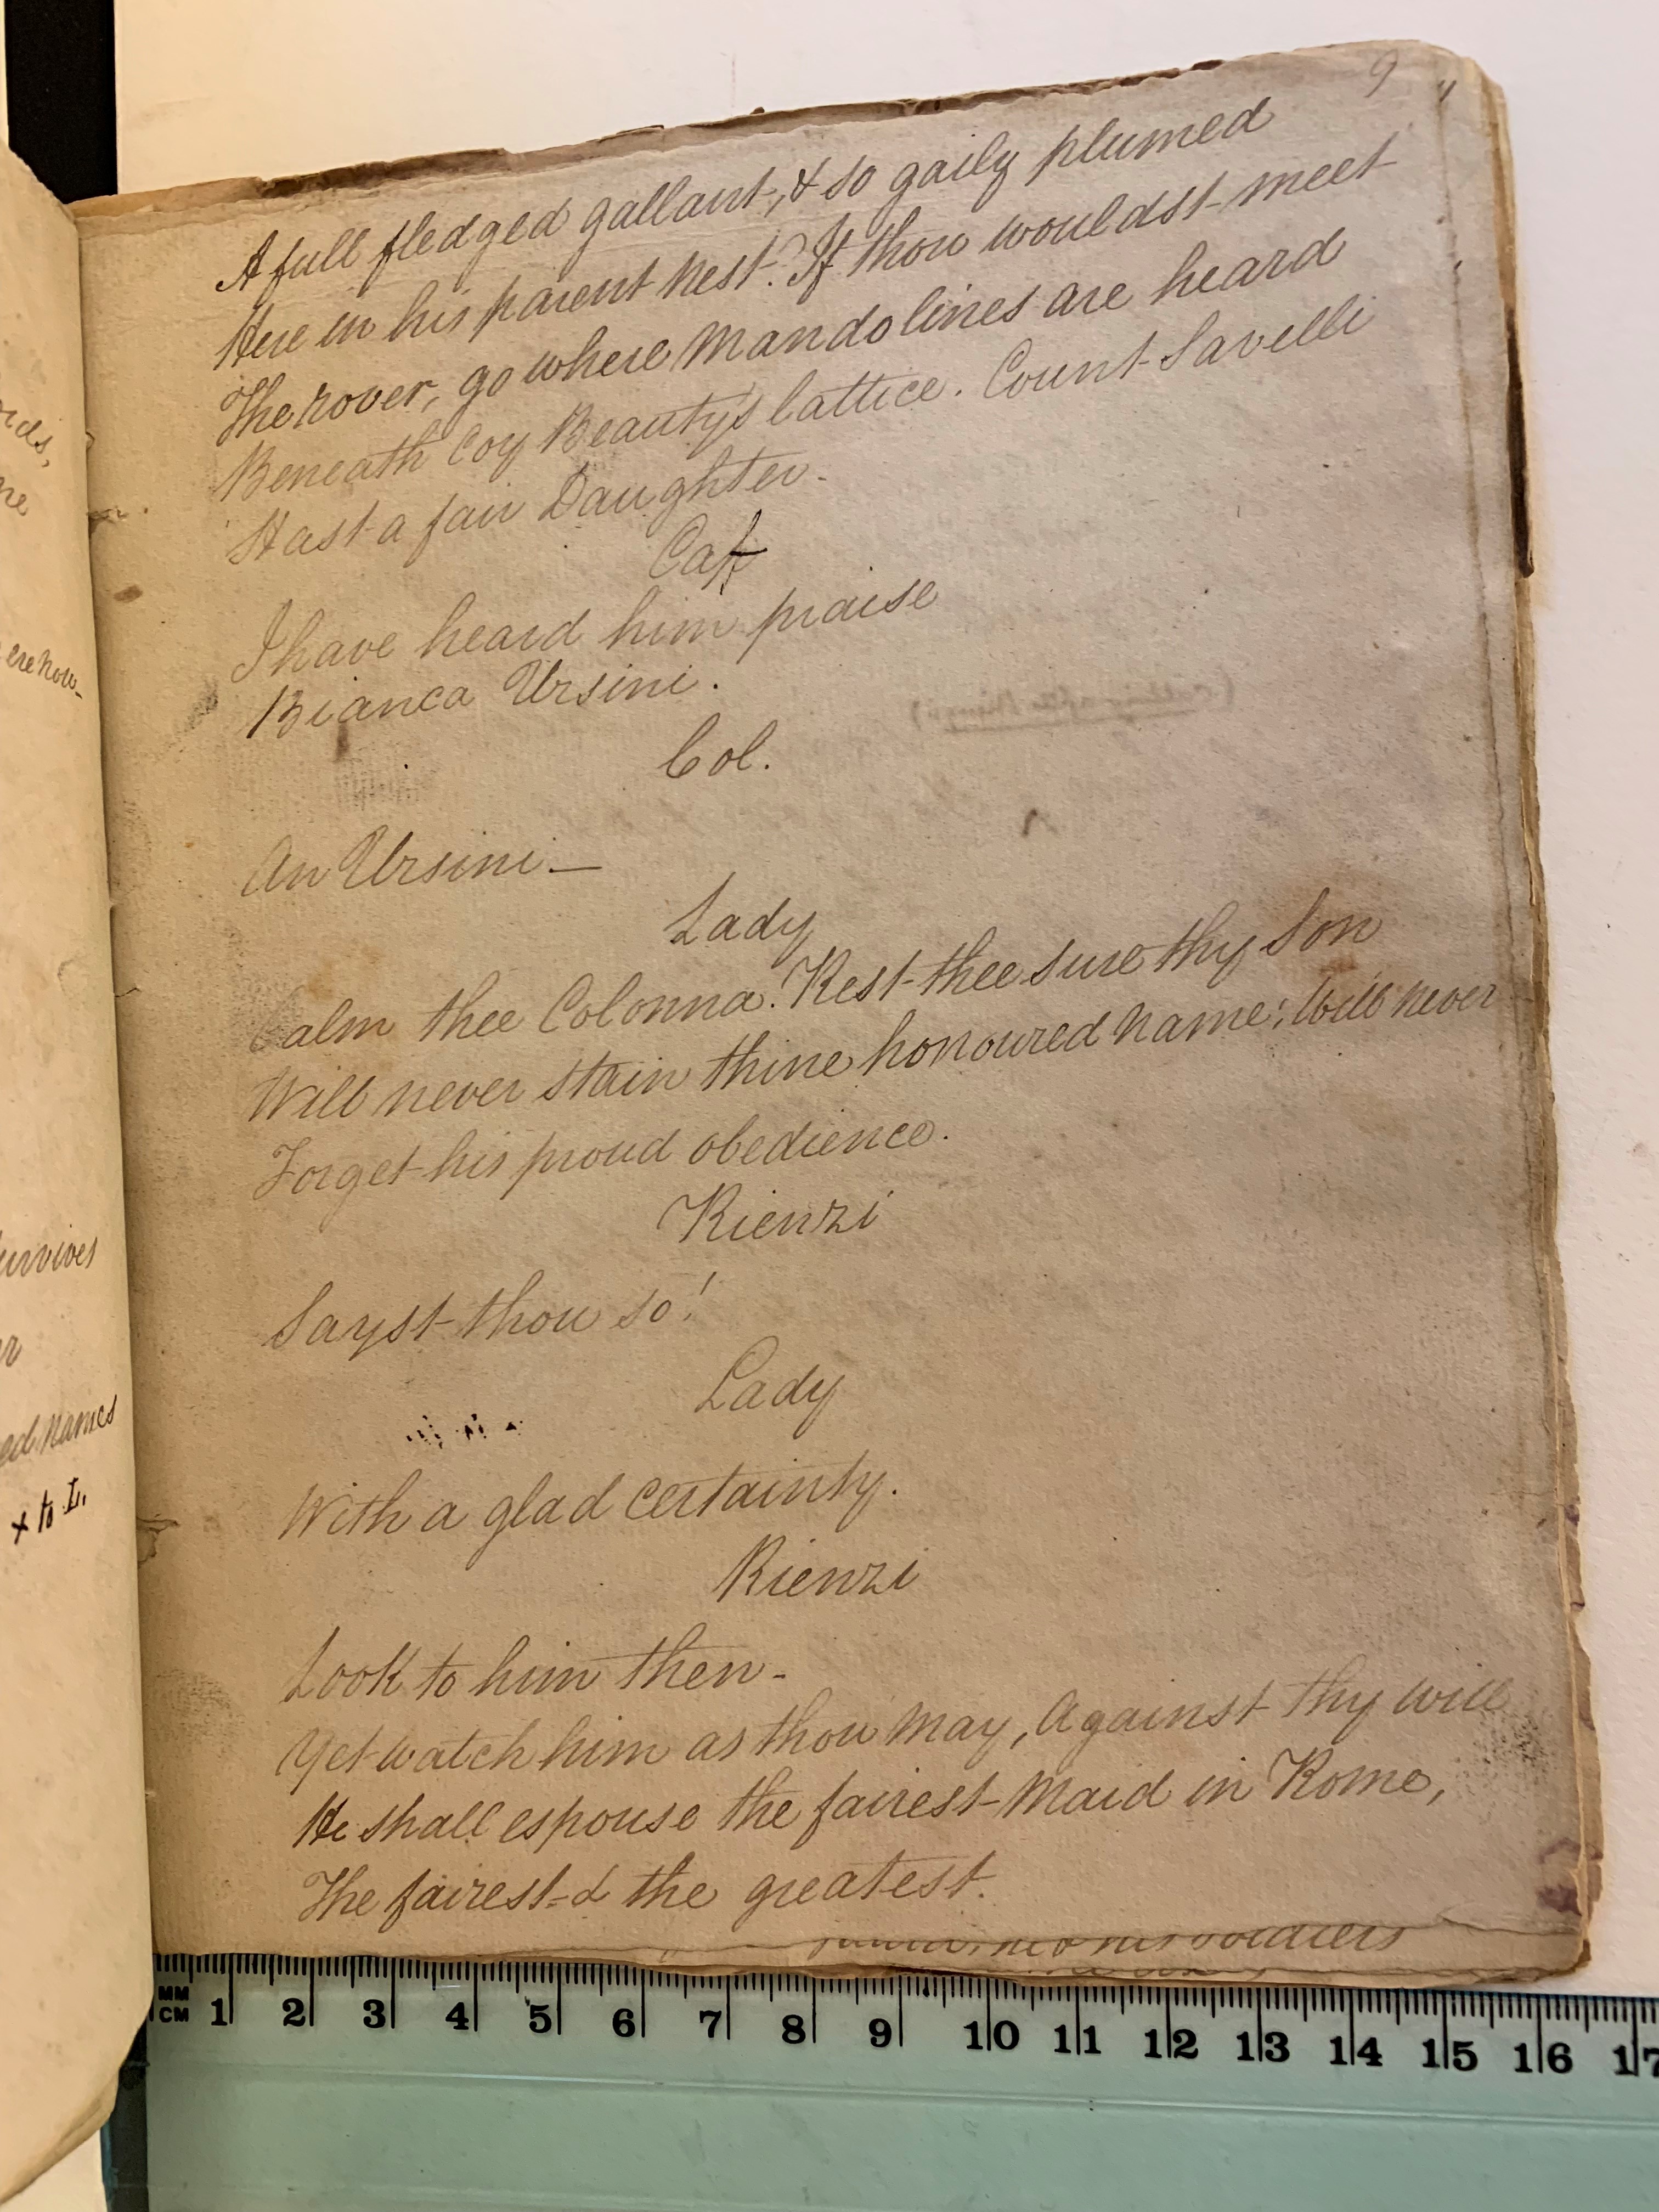 ords,
ne
ere now_
urvives
r
ed names
x to L.
9
A full fledged gallant, & so gaily plumed
Here in his parent Nest. If thou wouldst meet
The rover, go where Mandolines are heard
Beneath Coy Beauty's lattice. Count Savelli
Hast a fair Daughter.
Caf
I have heard him praise
Bianca Ursini.
Col.
An Ursini —
Lady
Calm thee Colonna. Rest thee sure thy Son
Will never stain thine honoured name; Will never
Forget his proud obedience.
Rienzi
Sayst thou so!
Lady
With a glad certainty.
Rienzi
Look to him then -
Yet watch him as thou may, Against thy will
He shall espouse the fairest Maid in Rome,
The fairest & the greatest.
soldiers
MM
CM 1 2 3 4 5 6 7 8 9 10 11 12 13 14 15 16 17